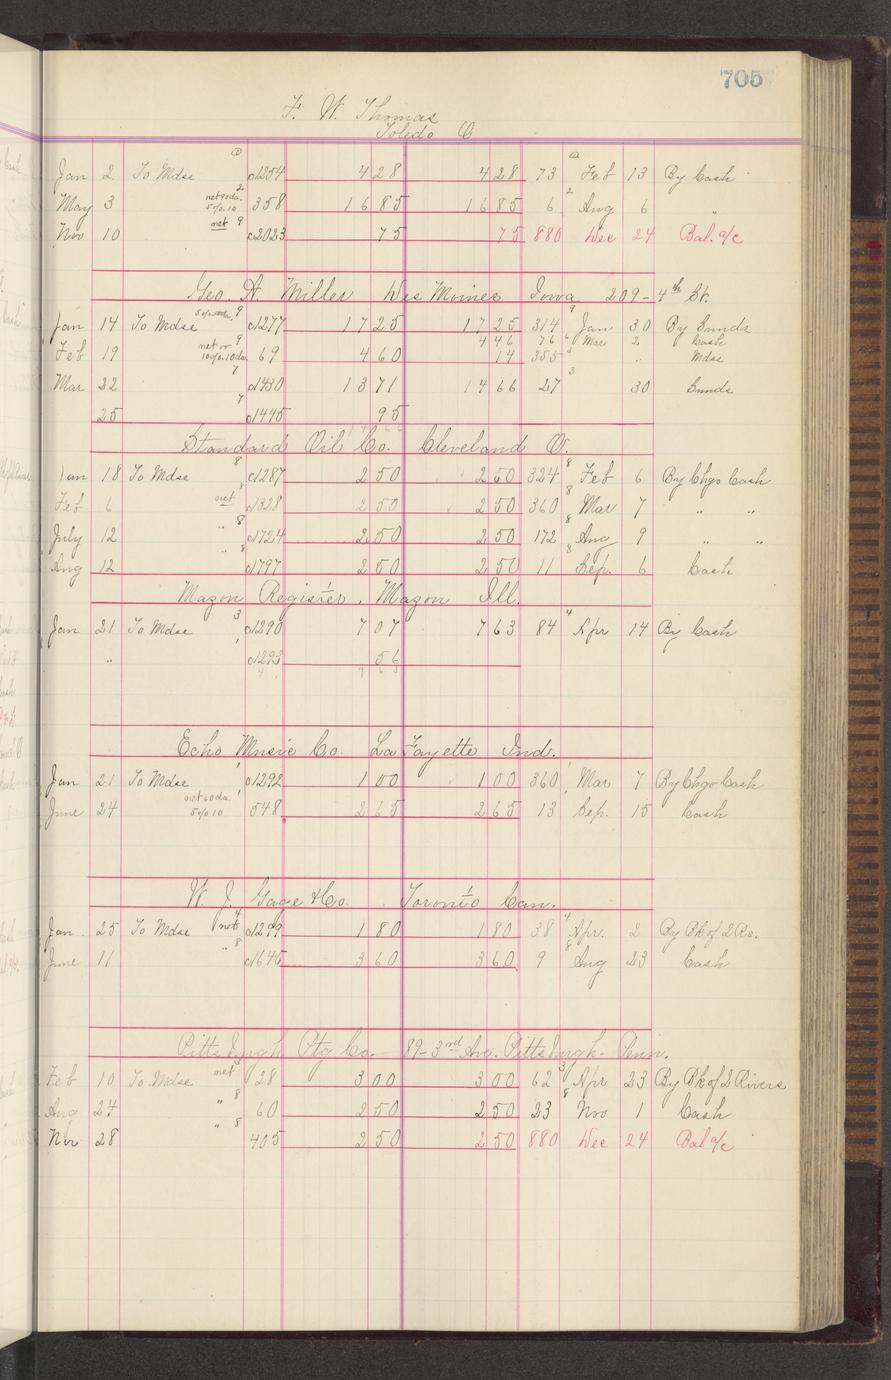 705
F. W. Thomas
Toledo O
Jan 2 To Mdse c1254 4 28 4 28 73 Feb 13 By Cash
May 3 net 90 da. 5 % 10 2 358 16 85 16 85 6 2 Aug 6 "
Nov 10 net 9 c2023 75 75 880 Dec 24 Bal. a/c
Geo. A. Miller Des Moines Iowa 209 - 4th St.
Jan 14 To Mdse 9 c1277 17 25 17 25 314 9 Jan 30 By Sunds
4 46 76 6 Mar 2 Cash
Feb 19 net or 10 % 10 da 9 69 4 60 14 355 " Mdse
Mar 22 7 c1430 13 71 14 66 27 3 30 Sunds
25 7 c1445 95
Standard Oil Co. Cleveland O.
Jan 18 To Mdse 8 c1287 2 50 2 50 324 8 Feb 6 By Chgo Cash
Feb 6 net 8 c1328 2 50 2 50 360 8 Mar 7 " "
July 12 " 8 c1724 2 50 2 50 172 8 Aug 9 " "
Aug 12 " 8 c1797 2 50 2 50 11 8 Sep. 6 Cash
Mazon Register, Mazon Ill.
Jan 21 To Mdse 3 c1290 7 07 7 63 84 4 Apr 14 By Cash
" 1 c1293 56
7 63
Echo Music Co. La Fayette Ind.
Jan 21 To Mdse 1 c1292 1 00 1 00 360 1 Mar 7 By Chgo Cash
June 24 net 60 da. 5 % 10 1 548 2 65 2 65 13 1 Sep. 15 Cash
W. J. Gage & Co. Toronto Can.
Jan. 25 To Mdse net 4 c1299 1 80 1 80 38 4 Apr. 2 By Bk of 2 Rs.
June 11 " 8 c1645 3 60 3 60 9 8 Aug 23 Cash
Pittsburgh Ptg Co. 89 - 3rd Ave. Pittsburgh - Penn.
Feb 10 To Mdse net 3 28 3 00 3 00 62 3 Apr 23 By Bk of 2 Rivers
Aug 24 " 8 60 2 50 2 50 23 8 Nov 1 Cash
Nov 28 " 8 405 2 50 2 50 880 Dec 24 Bal a/c